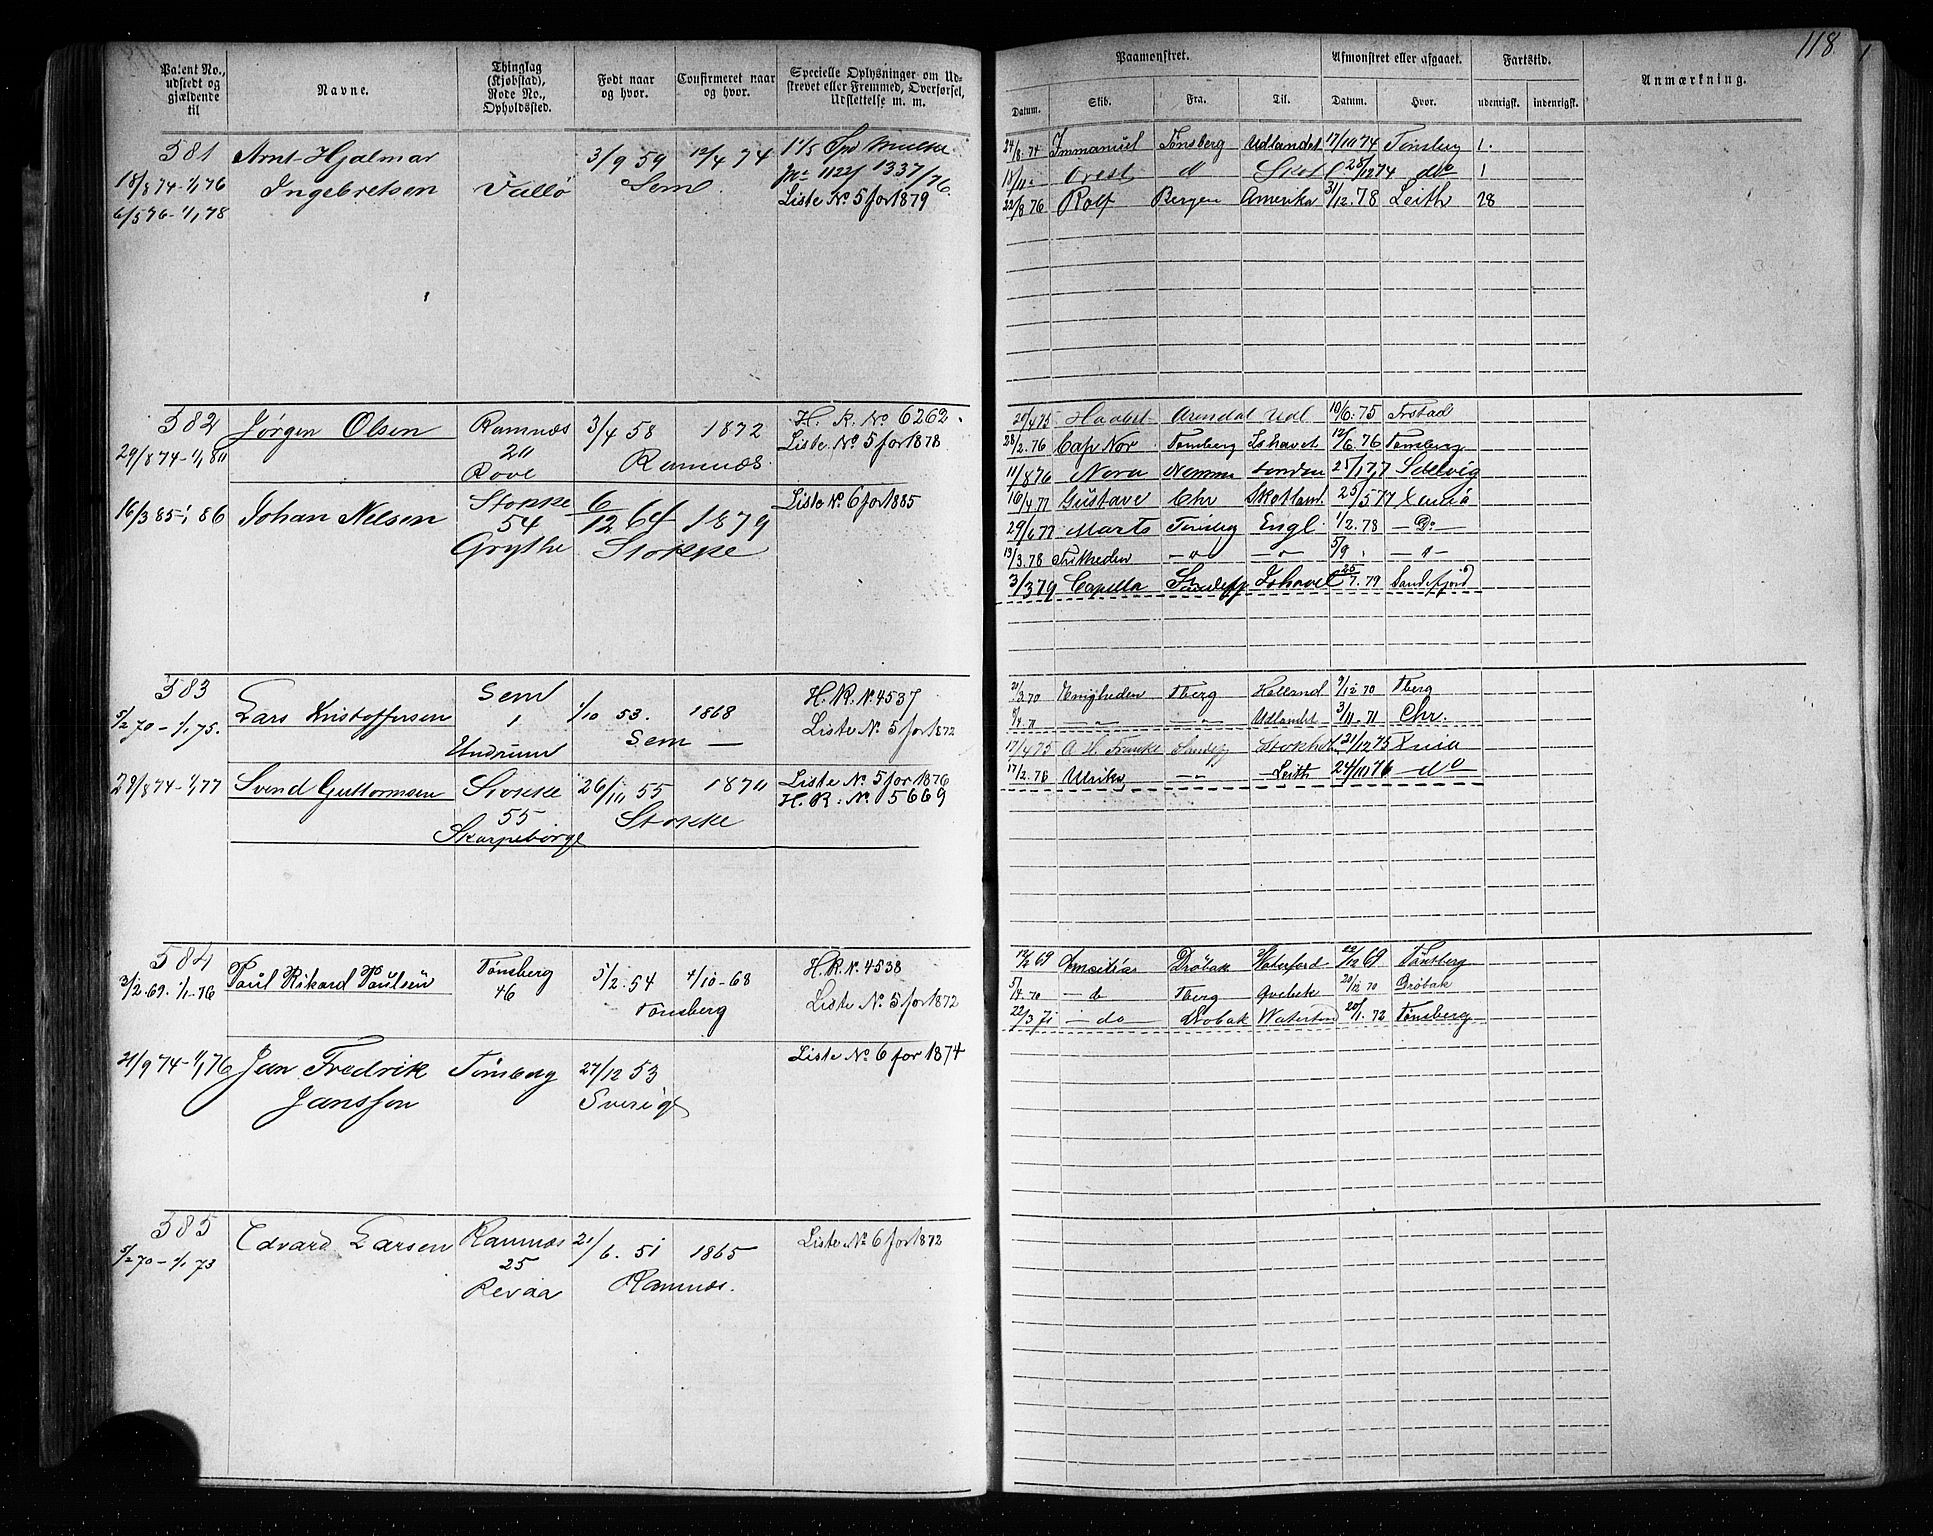 118
Patent No., udstedt og gjældende til
Navne.
Thinglag (Kjøbstad), Rode No., Opholdssted.
Født naar og hvor.
Confirmeret naar og hvor.
Specielle Oplysninger om Udskrevet eller Fremmed, Overførsel, Udslettelse m. m.
Paamønstret.
Afmønstret eller afgaaet.
Fartstid.
Anmærkning.
Datum. Skib. Fra. Til. Datum. Hvor. udenrigsk. indenrigsk.
581 Arnt Hjalmar 3/9 59 12/4 74
18/8 74-1/1 76 Ingebretsen Valló Sem. No 1122/ 1337/76
6/5 76-1/1 78 Liste No 5 for 1879
24/8 74 Immanuel Tønsberg Udlandet 17/10 74 Tønsberg 1.
18/11 Orest 28/12 74 do 1
22/8 76 Rolf Bergen Amerika 31/12.78 Leith 28
582 Jørgen Olsen Ramnæs 3/4 58 1872 H. R. No 6262.
29/8 74-1/1 80 20 Ramnæs Liste No 5 for 1878
Rove
16/3 85-1/1 86 Johan Nelsen Stokke 6/12 64 1879 Liste No 6 for 1885
54 Stokke
Grythe
20/4 75 Haabet Arendal Udl 10/6.75 Frstad
28/2.76 Cap Nor Tønsberg Ishavet 12/6.76 Tønsberg
11/8 76 Nora London 25/1 77
16/4 77 Gustave Chr Skotland 25/5 77 Xania
29/6 77 Tønsbg Engl. 1/2.78 - Do -
13/3.78 - " - - " - 5/9 - " -
3/3 79 Capella Ishavet 25/7.79 Sandefjord
583 Lars Kristoffersen Sem 1/10 53. 1868 H. R. N. 4537
5/2 70-1/1 75. 1 Sem - Liste No 5 for 1872
Undrum
28/8 74-1/1 77 Svend Guttormsen Stokke 26/11 55 1870 Liste No 5 for 1876
55 Stokke H. R. No 5669
Skarpeborge
21/3 70 Enigheden Tberg Holland 9/12 70 Tberg
8/4.71 - " - - " - Udlandet 3/11.71 Chr.
17/4 75 A. H. Francke Stokhol 21/12 75 Xnia
17/2.76 Ulrika - " - Leith 24/10 76 do
584 Paul Rikard Paulsen Tønsberg 5/2.54 4/10-68 H. R. N. 4538
3/2 69. 1/1-76 46 Tønsberg Liste No 5 for 1872
21/9 74-1/1 76 Jan Fredrik Tønsberg 27/12 53 Liste No 6 for 1874
Jansson Sverige
12/2 69 Drøbak Waterford 22/12 69 Tønsberg
5/4.70 - do Tberg Qvebek 20/12 70 Drøbak
22/3 71 - do Drøbak Waterford 20/1.72 Tønsberg
585 Edvard Larsen Ramnæs 21/6.51 1865 Liste No 6 for 1872
5/2 70-1/1 73 25 Ramnæs.
Revaa